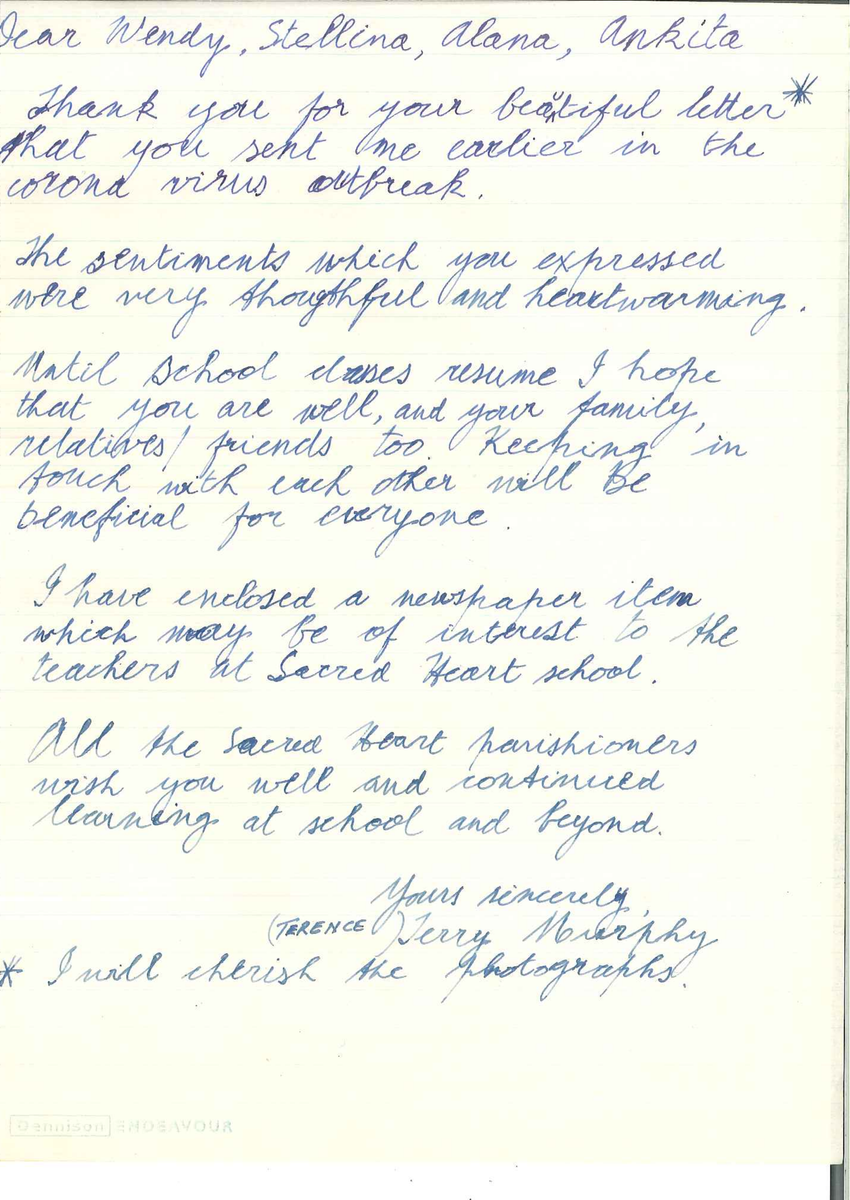 Dear Wendy, Stellina, Alana, Ankita
Thank you for your beautiful letter*
that you sent me earlier in the
corona virus outbreak.
The sentiments which you expressed
were very thougthful and heartwarming.
Until school classes resume I hope
that you are well, and your family,
relatives/friends too. Keeping in
touch with each other will be
beneficial for everyone.
I have enclosed a newspaper item
which may be of interest to the
teachers at Sacred Heart school.
All the Sacred Heart parishioners
wish you well and continued
learning at school and beyond.
Yours sincerely,
(TERENCE) Terry Murphy
* I will cherish the photographs.
Dennison ENDEAVOUR